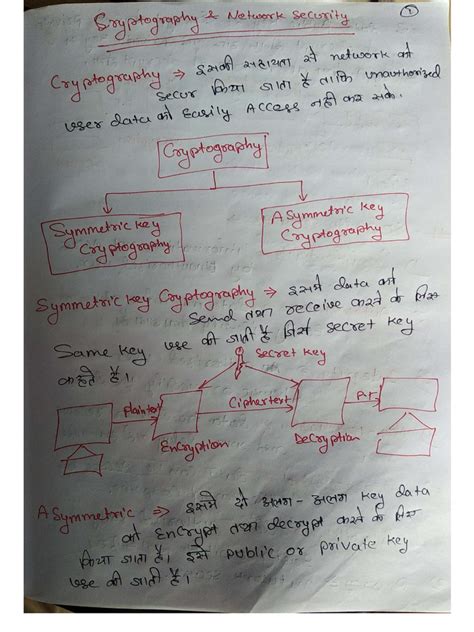 Cryptography & Network Security
1
Cryptography ⇒ इसकी सहायता से network को
secur किया जाता है ताकि unauthorized
user data को Easily Access नही कर सके.
Cryptography
Symmetric key
Cryptography
ASymmetric key
Cryptography
Symmetric key Cryptography ⇒ इसमे data को
Send तथा receive करने के लिए
Same key use की जाती है जिसे secret key
कहते है।
Secret key
Plaintext
Ciphertext
P.T.
Encryption
Decryption
ASymmetric ⇒ इसमे दो अलग-अलग key data
को Encrypt तथा decrypt करने के लिए
किया जाता है। इसे public or private key
use की जाती है।